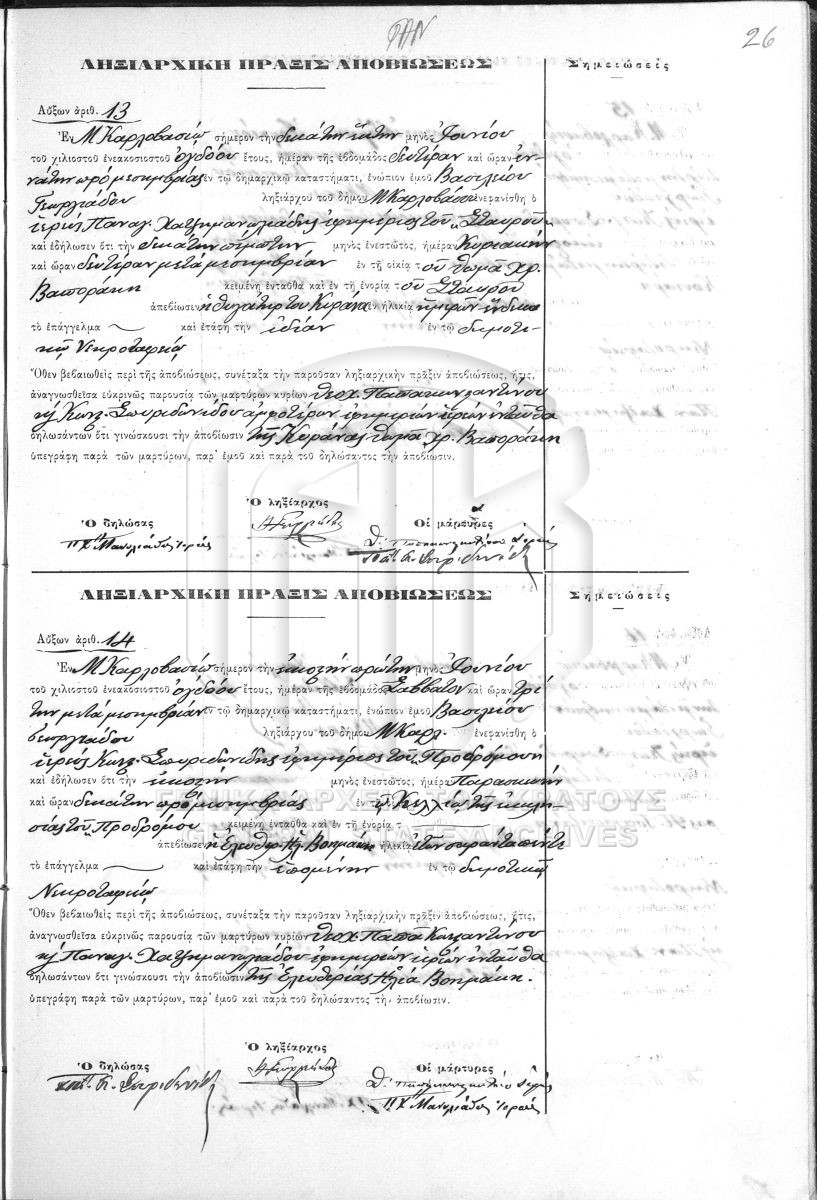 26
ΛΗΞΙΑΡΧΙΚΗ ΠΡΑΞΙΣ ΑΠΟΒΙΩΣΕΩΣ
Σημειώσεις
Αὔξων ἀριθ. 13
Ἐν Μ Καρλοβασίῳ σήμερον τὴν δεκάτην ἕκτην μηνὸς Ἰουνίου
τοῦ χιλιοστοῦ ἐνεακοσιοστοῦ ὀγδόου ἔτους, ἡμέραν τῆς ἑβδομάδος Δευτέραν καὶ ὥραν ἐν-
νάτην πρὸ μεσημβρίας ἐν τῷ δημαρχικῷ καταστήματι, ἐνώπιον ἐμοῦ Βασιλείου
Γεωργιάδου ληξιάρχου τοῦ δήμου Μ Καρλοβασίου ἐνεφανίσθη ὁ
ἱερεὺς Παναγ. Χατζημανωλιάδης ἐφημέριος τοῦ „Σταυροῦ“
καὶ ἐδήλωσεν ὅτι τὴν δεκάτην πέμπτην μηνὸς ἐνεστῶτος, ἡμέραν Κυριακὴν
καὶ ὥραν δευτέραν μετὰ μεσημβρίαν ἐν τῇ οἰκίᾳ τοῦ Θωμᾶ Χρ.
Βαποράκη κειμένῃ ἐνταῦθα καὶ ἐν τῇ ἐνορίᾳ τοῦ Σταυροῦ
ἀπεβίωσεν ἡ θυγάτηρ του Κυράνα ἐν ἡλικίᾳ ἡμερῶν ἕνδεκα
τὸ ἐπάγγελμα — καὶ ἐτάφη τὴν ἰδίαν ἐν τῷ δημοτι-
κῷ Νεκροταφείῳ
Ὅθεν βεβαιωθεὶς περὶ τῆς ἀποβιώσεως, συνέταξα τὴν παροῦσαν ληξιαρχικὴν πρᾶξιν ἀποβιώσεως, ἥτις,
ἀναγνωσθεῖσα εὐκρινῶς παρουσίᾳ τῶν μαρτύρων κυρίων Θεοχ. Παπακωνσταντίνου
κ Κωνς. Σπυριδωνίδου ἀμφοτέρων ἐφημερίων ἱερέων ἐνταῦθα
δηλωσάντων ὅτι γινώσκουσι τὴν ἀποβίωσιν τῆς Κυράνας Θωμᾶ Χρ. Βαποράκη
ὑπεγράφη παρὰ τῶν μαρτύρων, παρ' ἐμοῦ καὶ παρὰ τοῦ δηλώσαντος τὴν ἀποβίωσιν.
Ὁ δηλώσας
Ὁ ληξίαρχος
Οἱ μάρτυρες
ΛΗΞΙΑΡΧΙΚΗ ΠΡΑΞΙΣ ΑΠΟΒΙΩΣΕΩΣ
Σημειώσεις
Αὔξων ἀριθ. 14
Ἐν Μ Καρλοβασίῳ σήμερον τὴν εἰκοστὴν πρώτην μηνὸς Ἰουνίου
τοῦ χιλιοστοῦ ἐνεακοσιοστοῦ ὀγδόου ἔτους, ἡμέραν τῆς ἑβδομάδος Σάββατον καὶ ὥραν τρί
την μετὰ μεσημβρίαν ἐν τῷ δημαρχικῷ καταστήματι, ἐνώπιον ἐμοῦ Βασιλείου
Γεωργιάδου ληξιάρχου τοῦ δήμου Μ Καρλ. ἐνεφανίσθη ὁ
ἱερεὺς Κωνς. Σπυριδωνίδης ἐφημέριος τοῦ „Προδρόμου“
καὶ ἐδήλωσεν ὅτι τὴν εἰκοστὴν μηνὸς ἐνεστῶτος, ἡμέραν Παρασκευὴν
καὶ ὥραν δεκάτην πρὸ μεσημβρίας ἐν τῷ Κελλίῳ τῆς ἐκκλη-
σίας τοῦ „Προδρόμου κειμένῃ ἐνταῦθα καὶ ἐν τῇ ἐνορίᾳ τ
ἀπεβίωσεν ἡ Ἐλευθερ. Ἠλ. Βοημάκη ἡλικίᾳ ἐτῶν σαράντα πέντε
τὸ ἐπάγγελμα — καὶ ἐτάφη τὴν ἑπομένην ἐν τῷ δημοτικῷ
Νεκροταφείῳ
Ὅθεν βεβαιωθεὶς περὶ τῆς ἀποβιώσεως, συνέταξα τὴν παροῦσαν ληξιαρχικὴν πρᾶξιν ἀποβιώσεως, ἥτις,
ἀναγνωσθεῖσα εὐκρινῶς παρουσίᾳ τῶν μαρτύρων κυρίων Θεοχ. Παπᾶ Κωνσταντίνου
κ Παναγ. Χατζημανωλιάδου ἐφημερίων ἱερέων ἐνταῦθα
δηλωσάντων ὅτι γινώσκουσι τὴν ἀποβίωσιν τῆς Ἐλευθερίας Ἠλία Βοημάκη.
ὑπεγράφη παρὰ τῶν μαρτύρων, παρ' ἐμοῦ καὶ παρὰ τοῦ δηλώσαντος τὴν ἀποβίωσιν.
Ὁ δηλώσας
Ὁ ληξίαρχος
Οἱ μάρτυρες
ΓΕΝΙΚΑ ΑΡΧΕΙΑ ΤΟΥ ΚΡΑΤΟΥΣ
GENERAL STATE ARCHIVES